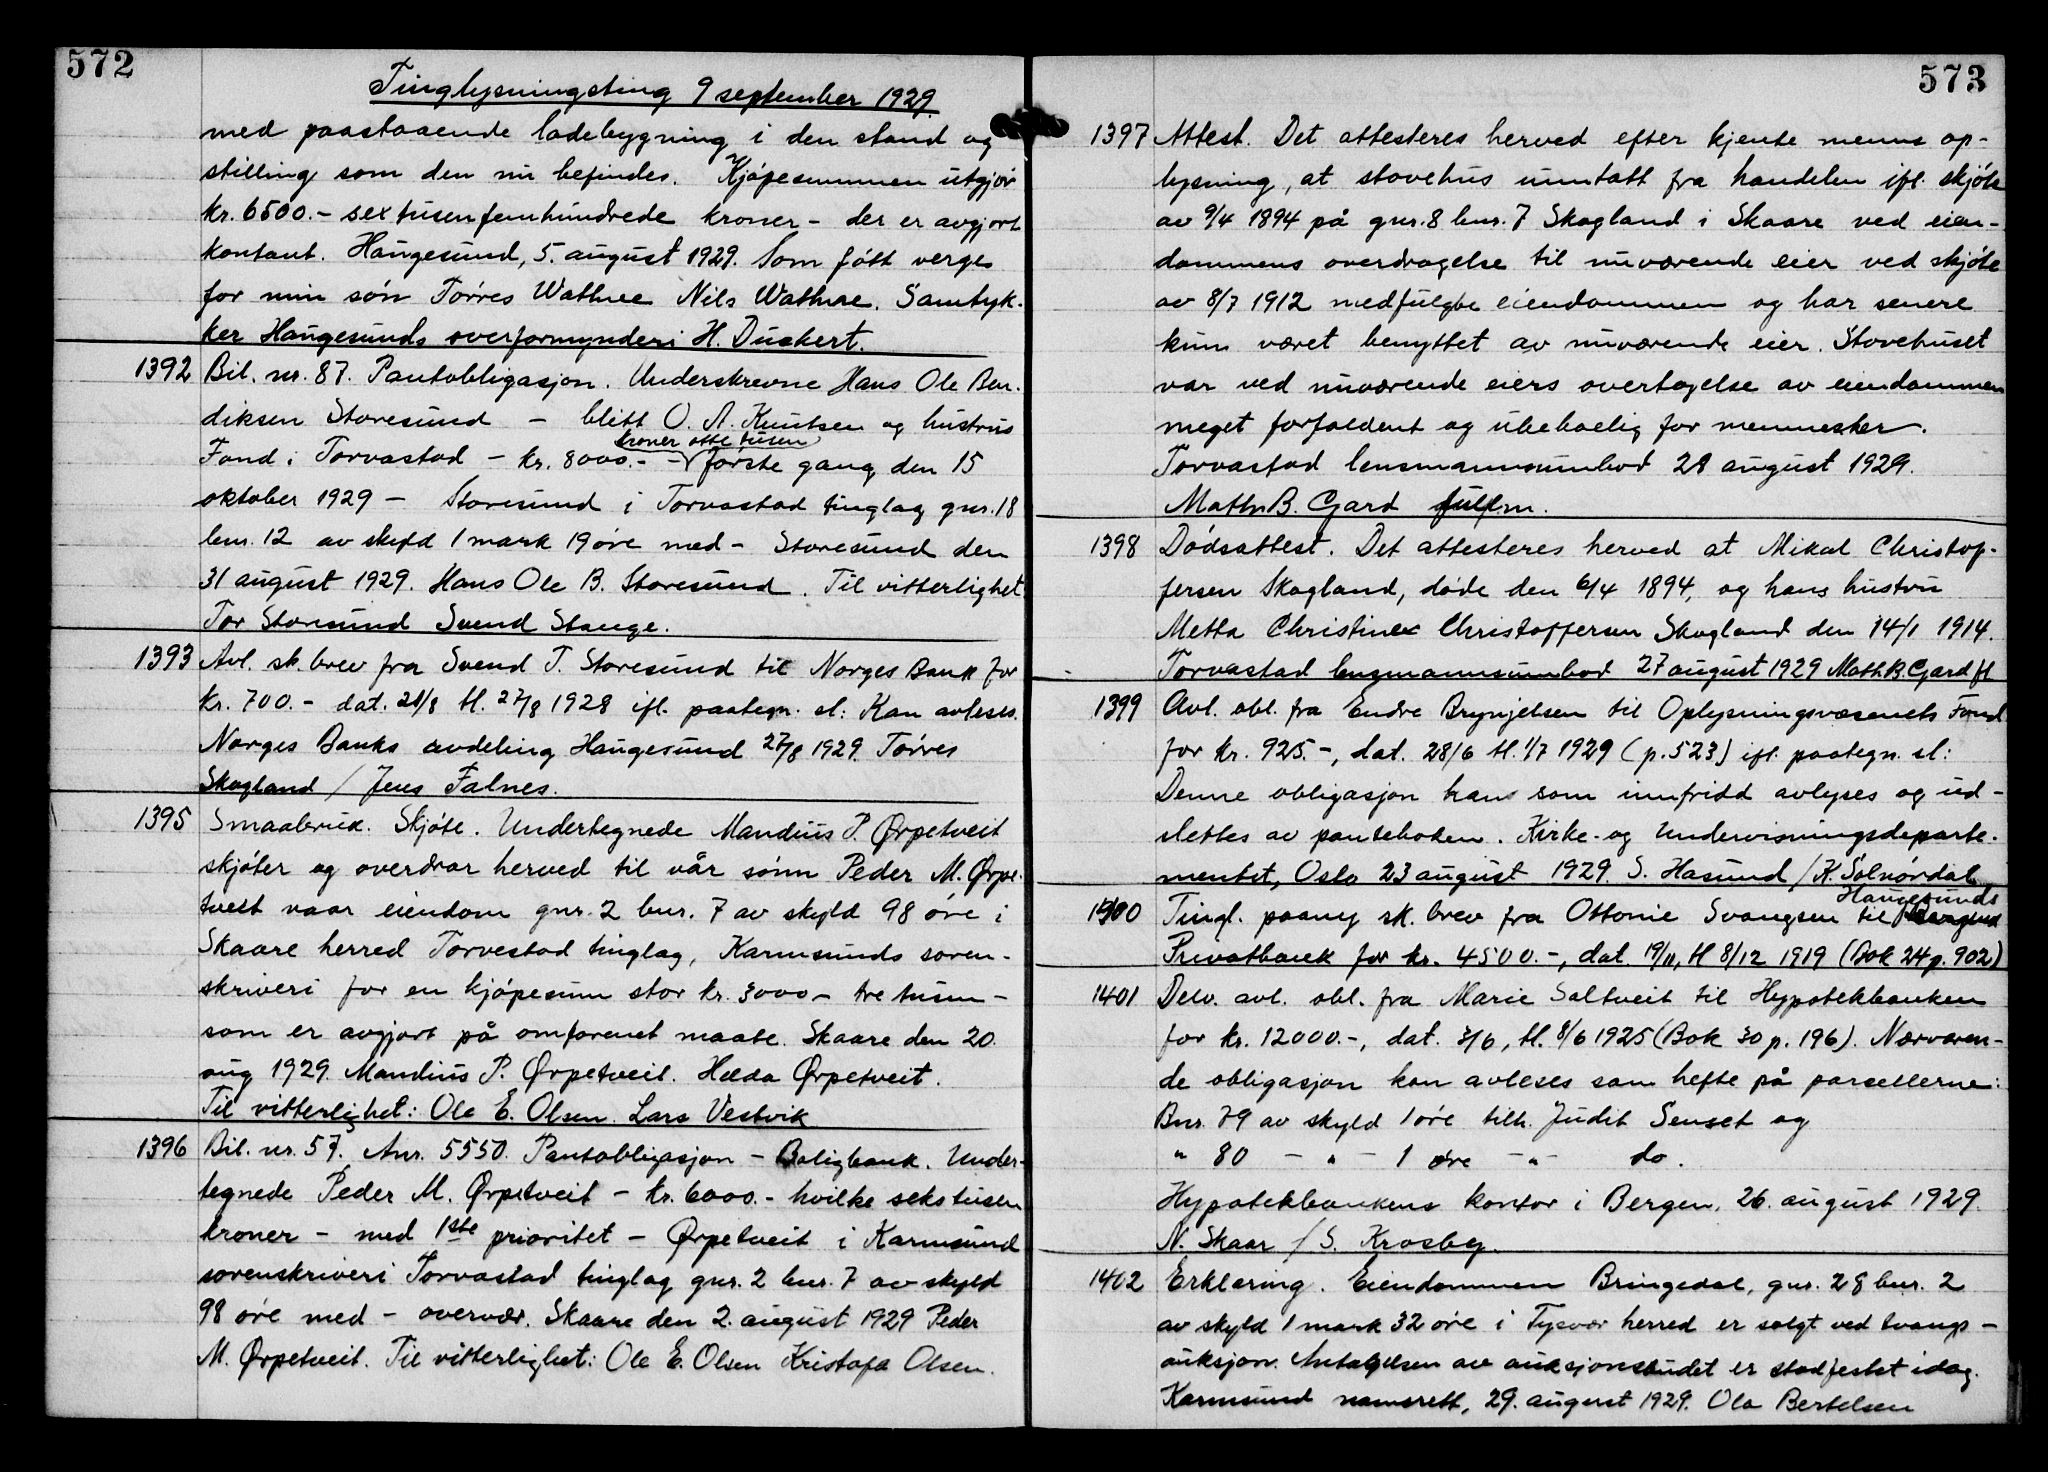 572
Tinglysningsting 9 september 1929.
med paastaaende ladebygning i den stand og
stilling som den nu befindes. Kjøpesummen utgjør
kr. 6500.- sextusenfemhundrede kroner - der er avgjort
kontant. Haugesund, 5. august 1929. Som født verge
for min søn Tørres Wathne Nils Wathne. Samtyk-
ker Haugesunds overformynderi H. Duckert.
1392 Bil. nr. 87. Pantobligasjon. Underskrevne Hans Ole Ben-
diksen Storesund - blitt O. A. Knutsen og hustrus
kroner otte tusen
Fond i Torvastad - kr. 8000.- - første gang den 15
oktober 1929 - Storesund i Torvastad tinglag gnr. 18
bnr. 12 av skyld 1 mark 19 øre med - Storesund den
31 august 1929. Hans Ole B. Storesund. Til vitterlighet
Tor Storesund Svend Stange.
1393 Avl. sk. brev fra Svend T. Storesund til Norges Bank for
kr. 700.- dat. 21/8 tl. 27/8 1928 ifl. paategn. sl: Kan avleses.
Norges Banks avdeling Haugesund 27/8 1929. Tørres
Skogland / Jens Falnes.
1395 Smaabruk. Skjøte. Undertegnede Mandius P. Ørpetveit
skjøter og overdrar herved til vår sønn Peder M. Ørpe-
tveit vaar eiendom gnr. 2 bnr. 7 av skyld 98 øre i
Skaare herred Torvestad tinglag, Karmsunds soren-
skriveri for en kjøpesum stor kr. 3000 - tre tusen -
som er avgjort på omforenet maate. Skaare den 20.
aug 1929. Mandius P. Ørpetveit. Hulda Ørpetveit.
Til vitterlighet: Ole E. Olsen. Lars Vestvik
1396 Bil. nr. 57. Anr. 5550. Pantobligasjon - Boligbank. Under-
tegnede Peder M. Ørpetveit - kr. 6000.- hvilke sekstusen
kroner - med 1ste prioritet - Ørpetveit i Karmsund
sorenskriveri Torvastad tinglag gnr. 2 bnr. 7 av skyld
98 øre med - overvær. Skaare den 2. august 1929 Peder
M. Ørpetveit. Til vitterlighet: Ole E. Olsen Kristofa Olsen.
573
1397 Attest. Det attesteres herved efter kjente menns op-
lysning, at stovehus unntatt fra handelen ifl. skjøte
av 9/4 1894 på gnr. 8 bnr. 7 Skogland i Skaare ved eien-
dommens overdragelse til nuværende eier ved skjøte
av 8/7 1912 medfulgte eiendommen og har senere
kun været benyttet av nuværende eier. Stovehuset
var ved nuværende eiers overtagelse av eiendommen
meget forfaldent og ubeboelig for mennesker.
Torvastad lensmannsumbod 28 august 1929.
Math B. Gard fullm.
1398 Dødsattest. Det attesteres herved at Mikal Christof-
fersen Skogland, døde den 6/4 1894, og hans hustru
Metta Christine Christoffersen Skogland den 14/1 1914.
Torvastad lensmannsumbod 27 august 1929 Math B. Gard fl
1399 Avl. obl. fra Endre Brynjelsen til Oplysningsvæsenets Fond
for kr. 925.-, dat. 28/6 tl. 1/7 1929 (p. 523) ifl. paategn. sl:
Denne obligasjon kan som innfridd avlyses og ud-
slettes av panteboken. Kirke- og Undervisningsdeparte-
mentet, Oslo 23 august 1929. S. Hasund / K. Solnørdal
Haugesunds
1400 Tingl. paany sk. brev fra Ottonie Svangsen til
Privatbank for kr. 4500.-, dat. 19/11, tl 8/12 1919 (Bok 24 p. 902)
1401 Delv. avl. obl. fra Marie Saltveit til Hypotekbanken
for kr. 12000.-, dat. 3/6, tl. 8/6 1925 (Bok 30 p. 196). Nærværen-
de obligasjon kan avleses som hefte på parsellerne:
Bnr. 79 av skyld 1 øre tilh. Judit Senset og
" 80 - " - 1 øre - " - do.
Hypotekbankens kontor i Bergen, 26. august 1929.
N. Skaar / S. Krosby.
1402 Erklæring. Eiendommen Bringedal, gnr. 28 bnr. 2
av skyld 1 mark 32 øre i Tysvær herred er solgt ved tvangs-
auksjon. Antagelsen av auksjonsbudet er stadfestet idag.
Karmsund namsrett, 29. august 1929. Ola Bertelsen